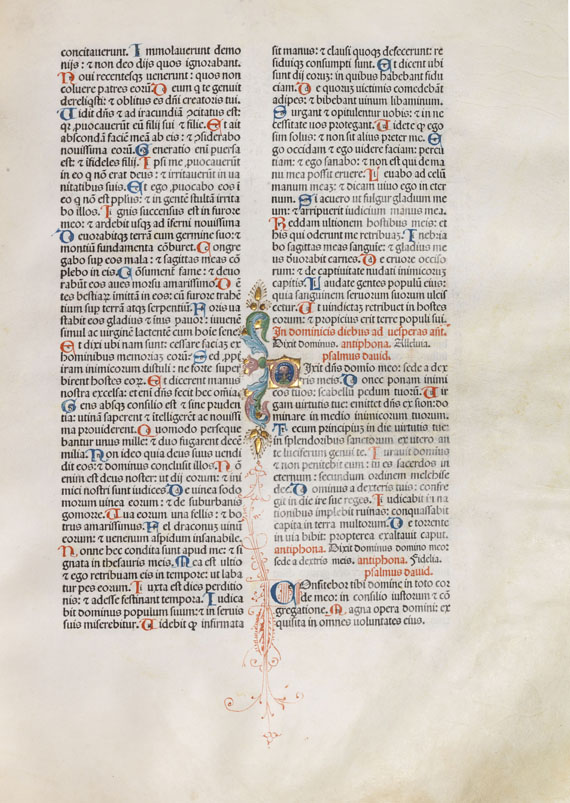 concitauerunt. Immolauerunt demo
nijs: ⁊ non deo dijs quos ignorabant.
Noui recentesqꝫ uenerunt: quos non
coluere patres eorū. Deum q te genuit
dereliqsti: ⁊ oblitus es dn̄i creatoris tui.
Uidit dn̄s ⁊ ad iracundiā ꝓcitatus est:
qꝛ ꝓuocauerūt eū filij sui ⁊ filie. Et ait
abscondā faciē meā ab eis: ⁊ ꝯsiderabo
nouissima eorū. Generatio eni ꝑuersa
est: ⁊ īfideles filij. Ipsi me ꝓuocauerūt
in eo q nō erat deus: ⁊ irritauerūt in ua
nitatibus suis. Et ego ꝓuocabo eos ī
eo q nō est ppl̄us: ⁊ in gentē stultā irrita
bo illos. Ignis succensus est in furore
meo: ⁊ ardebit usqꝫ ad īferni nouissima
Deuorabitqꝫ terrā cum germine suo: ⁊
montiū fundamenta cōburet. Congre
gabo sup eos mala: ⁊ sagittas meas cō
plebo in eis. Cōsument fame: ⁊ deuo
rabūt eos aues morsu amarissimo. Dē
tes bestiaꝝ imittā in eos: cū furore trahē
tium sup terrā atqꝫ serpentiū. Foris ua
stabit eos gladius ⁊ ītus pauor: iuuenē
simul ac uirginē lactentē cum hoīe sene.
Et dixi ubi nam sunt: cessare faciā ex
hominibus memoriā eorū. Sed ꝓpt
iram inimicorum distuli: ne forte super
birent hostes eorꝝ. Et dicerent manus
nostra excelsa: et eni dn̄s fecit hec oīa.
Gens absqꝫ consilio est ⁊ sine pruden
tia: utinā saperent ⁊ ītelligerēt ac nouissi
ma prouiderent. Quomodo perseque
bantur unus mille: ⁊ duo fugarent decē
milia. Non ideo quia deus suus uendi
dit eos: ⁊ dominus conclusit illos. Nō
enim est deus noster: ut dij eorum: ⁊ ini
mici nostri sunt iudices. De uinea sodo
morum uinea eorum: ⁊ de suburbanis
gomorre. Uua eorum uua fellis: ⁊ bo
trus amarissimus. Fel draconuȝ uinū
eorum: ⁊ uenenum aspidum insanabile.
Nonne hec condita sunt apud me: ⁊ si
gnata in thesauris meis. Mea est ultio
⁊ ego retribuam eis in tempore: ut laba
tur pes eorum. Iuxta est dies perditio
nis: ⁊ adesse festinant tempora. Iudica
bit dominus populum suum: ⁊ in seruis
suis miserebitur. Uidebit ꝙ infirmata
sit manus: ⁊ clausi quoqꝫ defecerunt: re
siduiqꝫ consumpti sunt. Et dicent ubi
sunt dij eorum: in quibus habebant fidu
ciam. De quorum uictimis comedebāt
adipes: ⁊ bibebant uinum libaminum.
Surgant ⁊ opitulentur uobis: ⁊ in ne
cessitate uos protegant. Uidete ꝙ ego
sim solus: ⁊ non sit alius preter me. Ego
occidam ⁊ ego uiuere faciam: percu
tiam: ⁊ ego sanabo: ⁊ non est qui de ma
nu mea possit eruere. Leuabo ad celū
manum meam: ⁊ dicam uiuo ego in eter
num. Si acuero ut fulgur gladium me
um: ⁊ arripuerit iudicium manus mea.
Reddam ultionem hostibus meis: et
his qui oderunt me retribuam. Inebria
bo sagittas meas sanguīe: ⁊ gladius me
us deuorabit carnes. De cruore occiso
rum: ⁊ de captiuitate nudati inimicorum
capitis. Laudate gentes populū eius:
quia sanguinem seruorum suorum ulcis
cetur. Et uindictam retribuet in hostes
eorum: ⁊ propicius erit terre populi sui.
In dominicis diebus ad uesperas añ.
Dixit dominus. antiphona. Alleluia.
psalmus dauid.
Dixit dn̄s domīo meo: sede a dex
tris meis. Donec ponam inimi
cos tuos: scabellū pedum tuorū. Uir
gam uirtutis tue: emittet dn̄s ex sion: do
minare in medio inimicorum tuorum.
Tecum principium in die uirtutis tue:
in splendoribus sanctorum ex utero an
te luciferum genui te. Iurauit dominus
⁊ non penitebit eum: tu es sacerdos in
eternum: secundum ordinem melchise
dec. Dominus a dextris tuis: confre
git in die ire sue reges. Iudicabit in na
tionibus implebit ruinas: conquassabit
capita in terra multorum. De torrente
in uia bibit: propterea exaltauit caput.
antiphona. Dixit dominus domino meo:
sede a dextris meis. antiphona. Fidelia.
psalmus dauid.
Confitebor tibi domine in toto cor
de meo: in consilio iustorum ⁊ cō
gregatione. Magna opera domini: ex
quisita in omnes uoluntates eius.